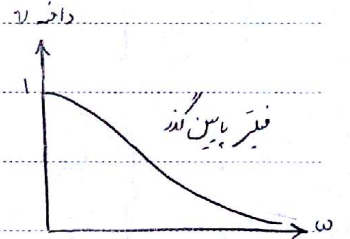 دامنه v
۱
فیلتر پایین گذر
ω